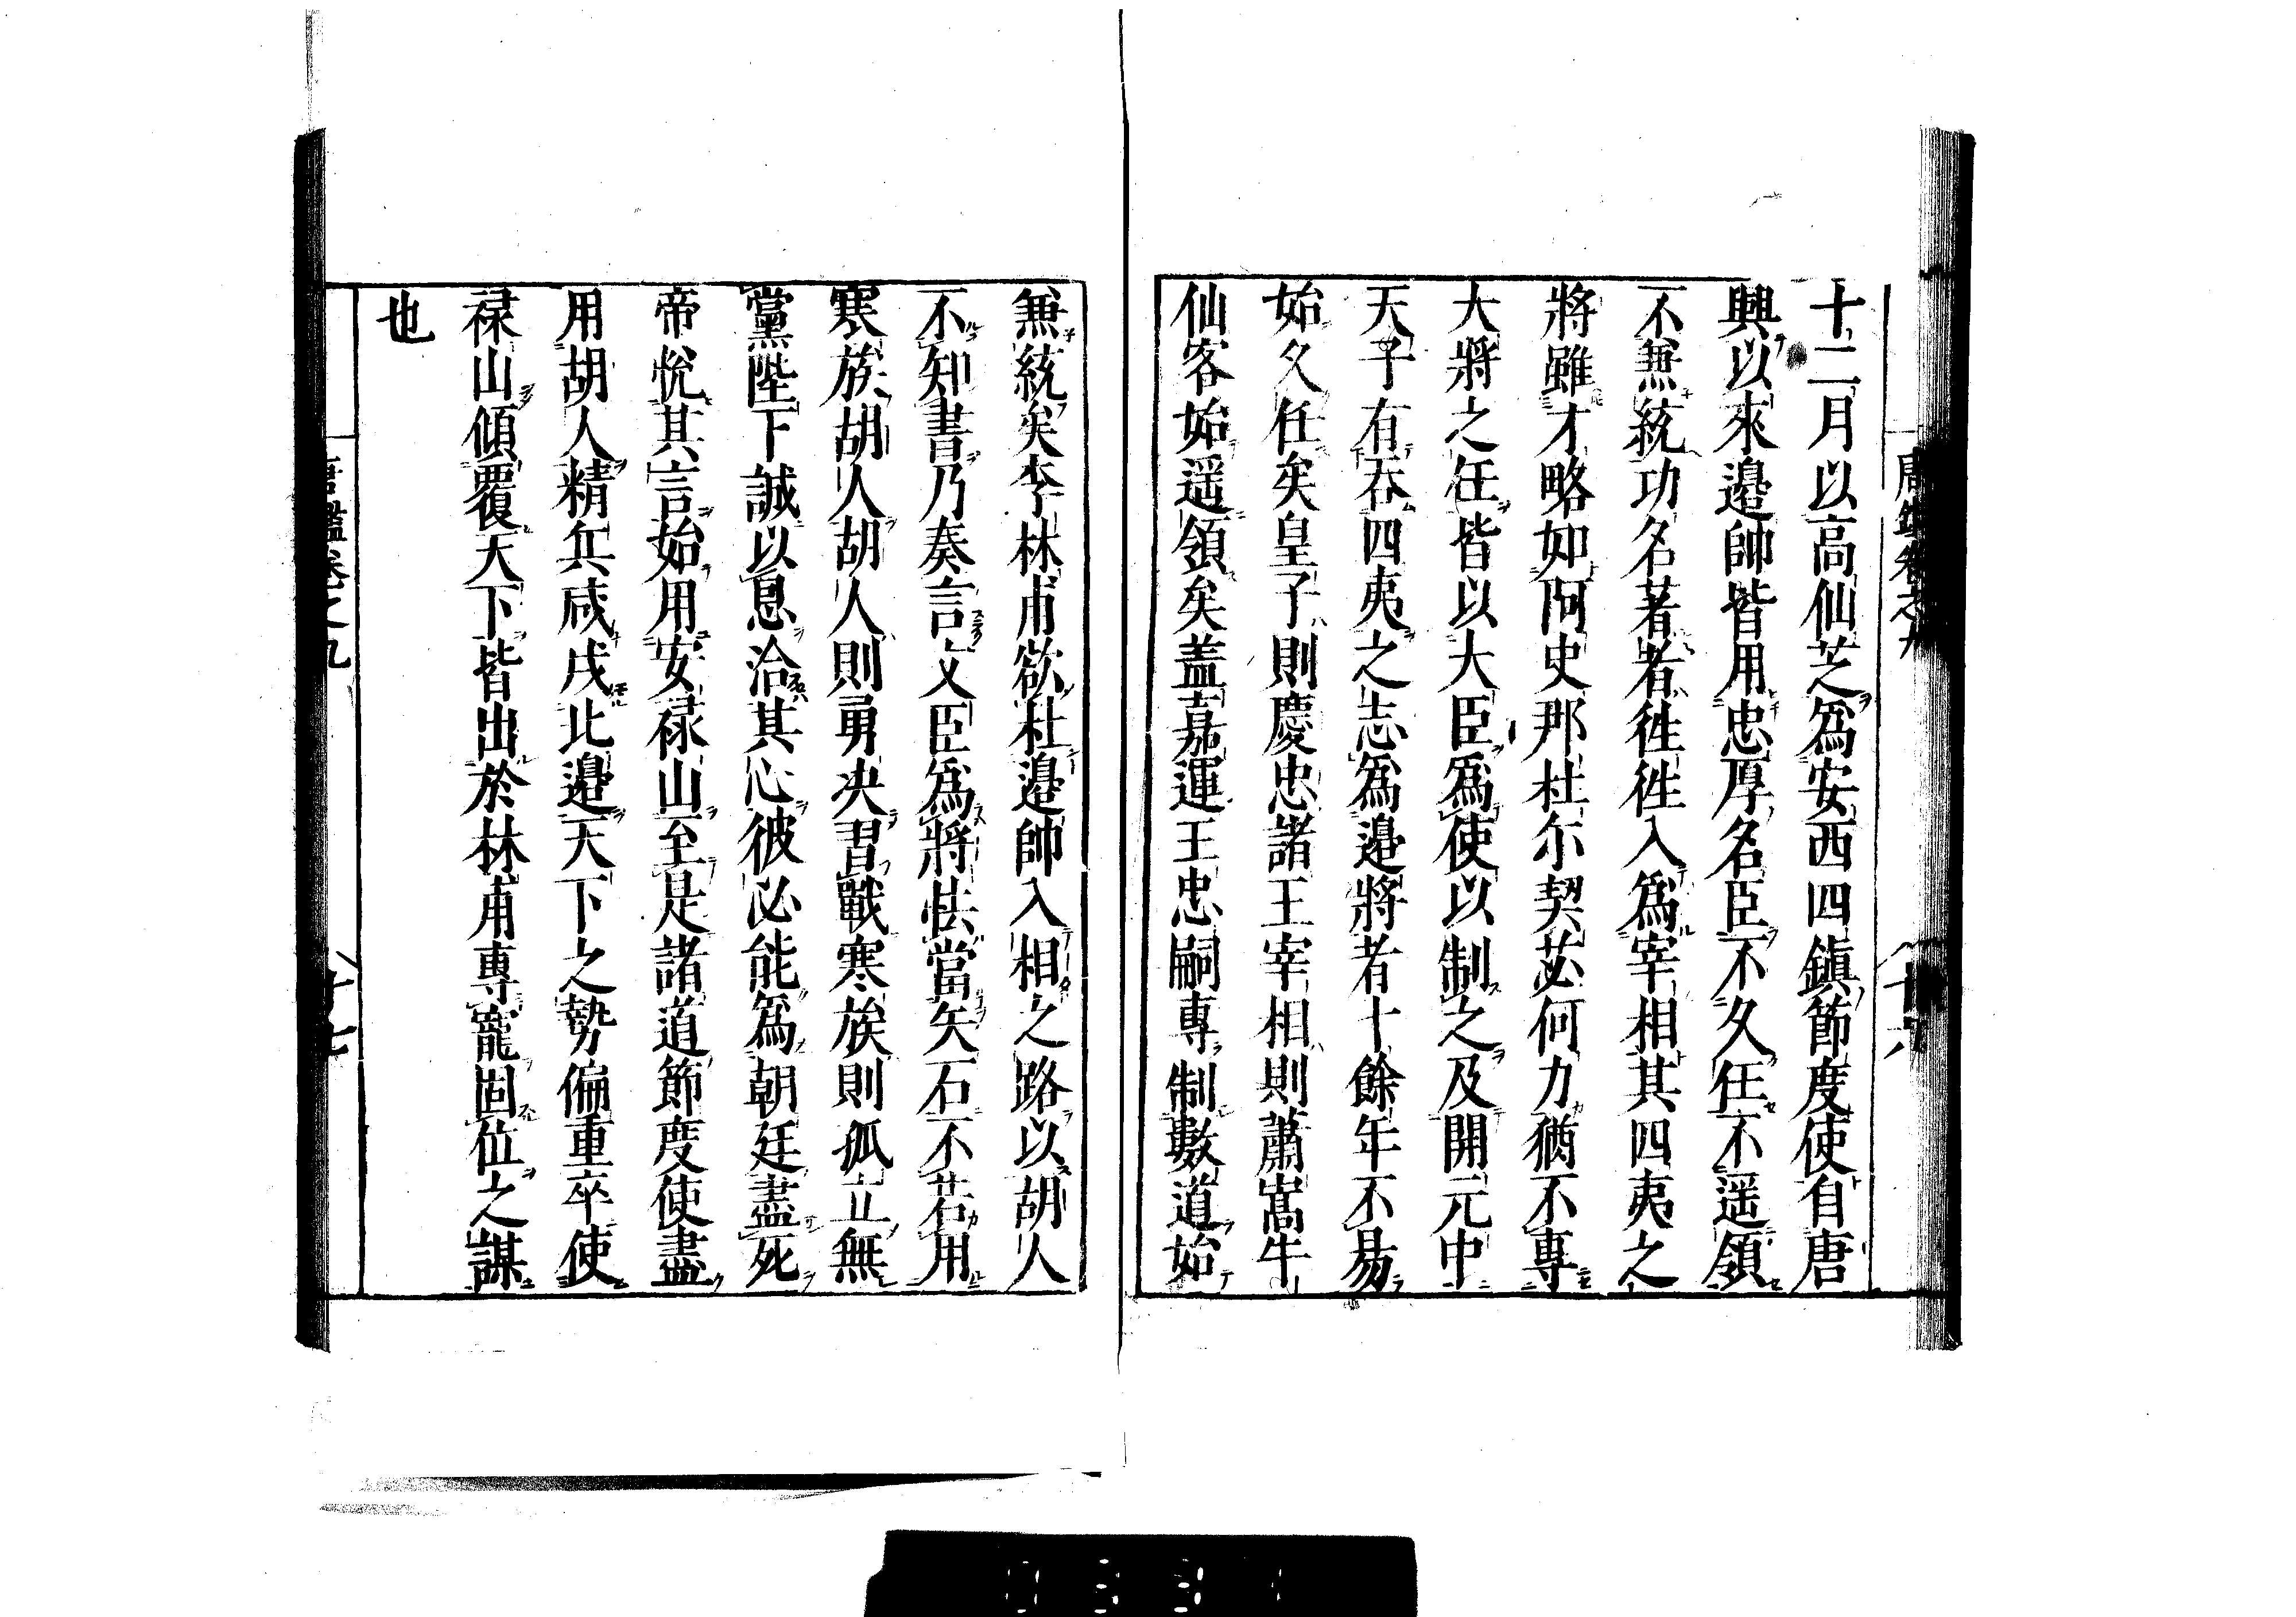 唐鑑卷之九
十六
十二月以高仙芝爲安西四鎭節度使自唐
興以來邉帥皆用忠厚名臣不久任不遥領
不兼統功名著者徃徃入爲宰相其四夷之
將雖才略如阿史那杜尓契苾何力猶不專
大將之任皆以大臣爲使以制之及開元中
天子有吞四夷之志爲邉將者十餘年不易
始久任矣皇子則慶忠諸王宰相則蕭嵩牛
仙客始遥領矣盖嘉運王忠嗣專制數道始
兼統矣李林甫欲杜邉帥入相之路以胡人
不知書乃奏言文臣爲將怯當矢石不若用
寒族胡人胡人則勇决習戰寒族則孤立無
黨陛下誠以恩洽其心彼必能爲朝廷盡死
帝恱其言始用安禄山至是諸道節度使盡
用胡人精兵咸戍北邉天下之勢偏重卒使
禄山傾覆天下皆出於林甫專寵固位之謀
也
唐鑑卷之九
十七